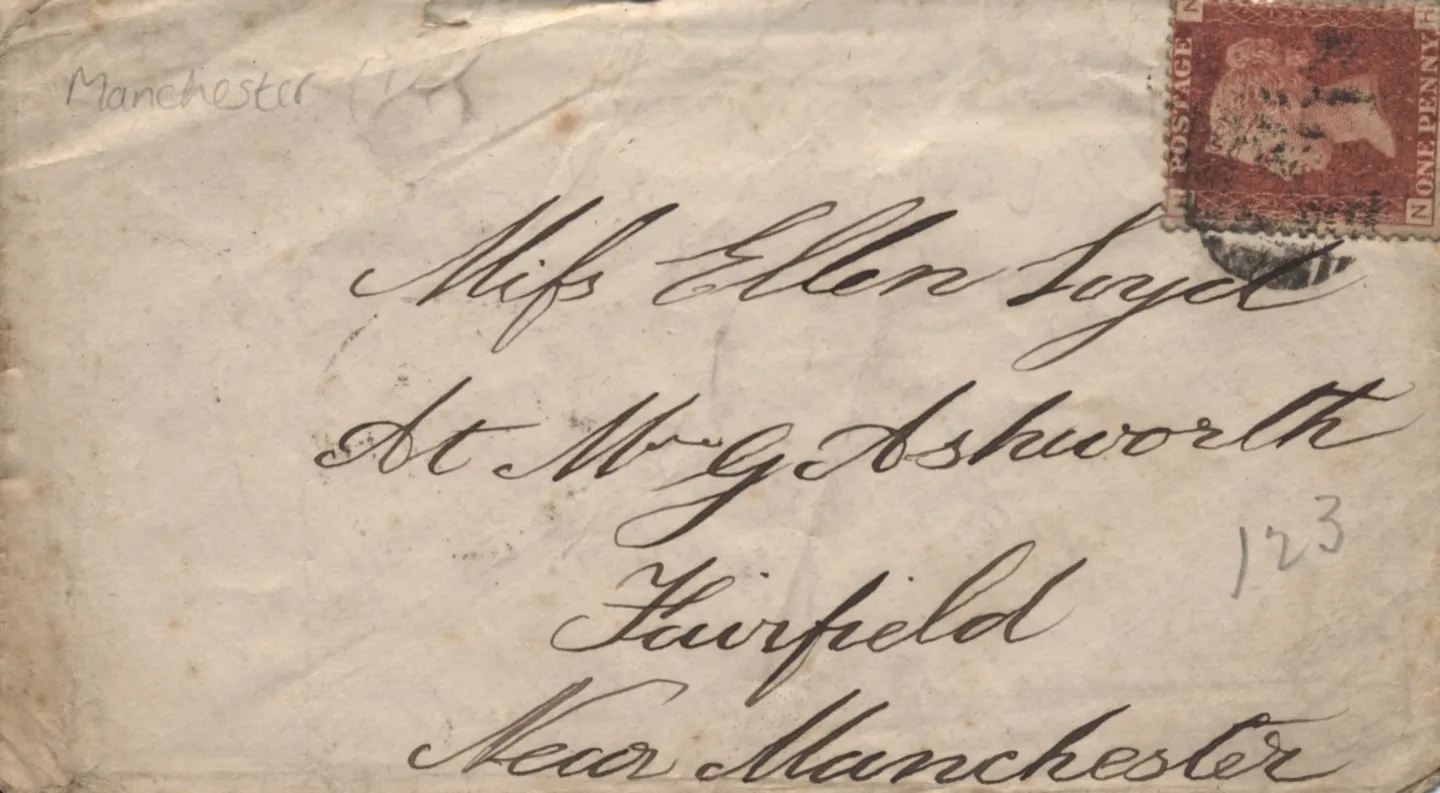 Manchester
POSTAGE
ONE PENNY
N
H
H
N
Miſs Ellen Loyd
At Mr G Ashworth
123
Fairfield
Near Manchester